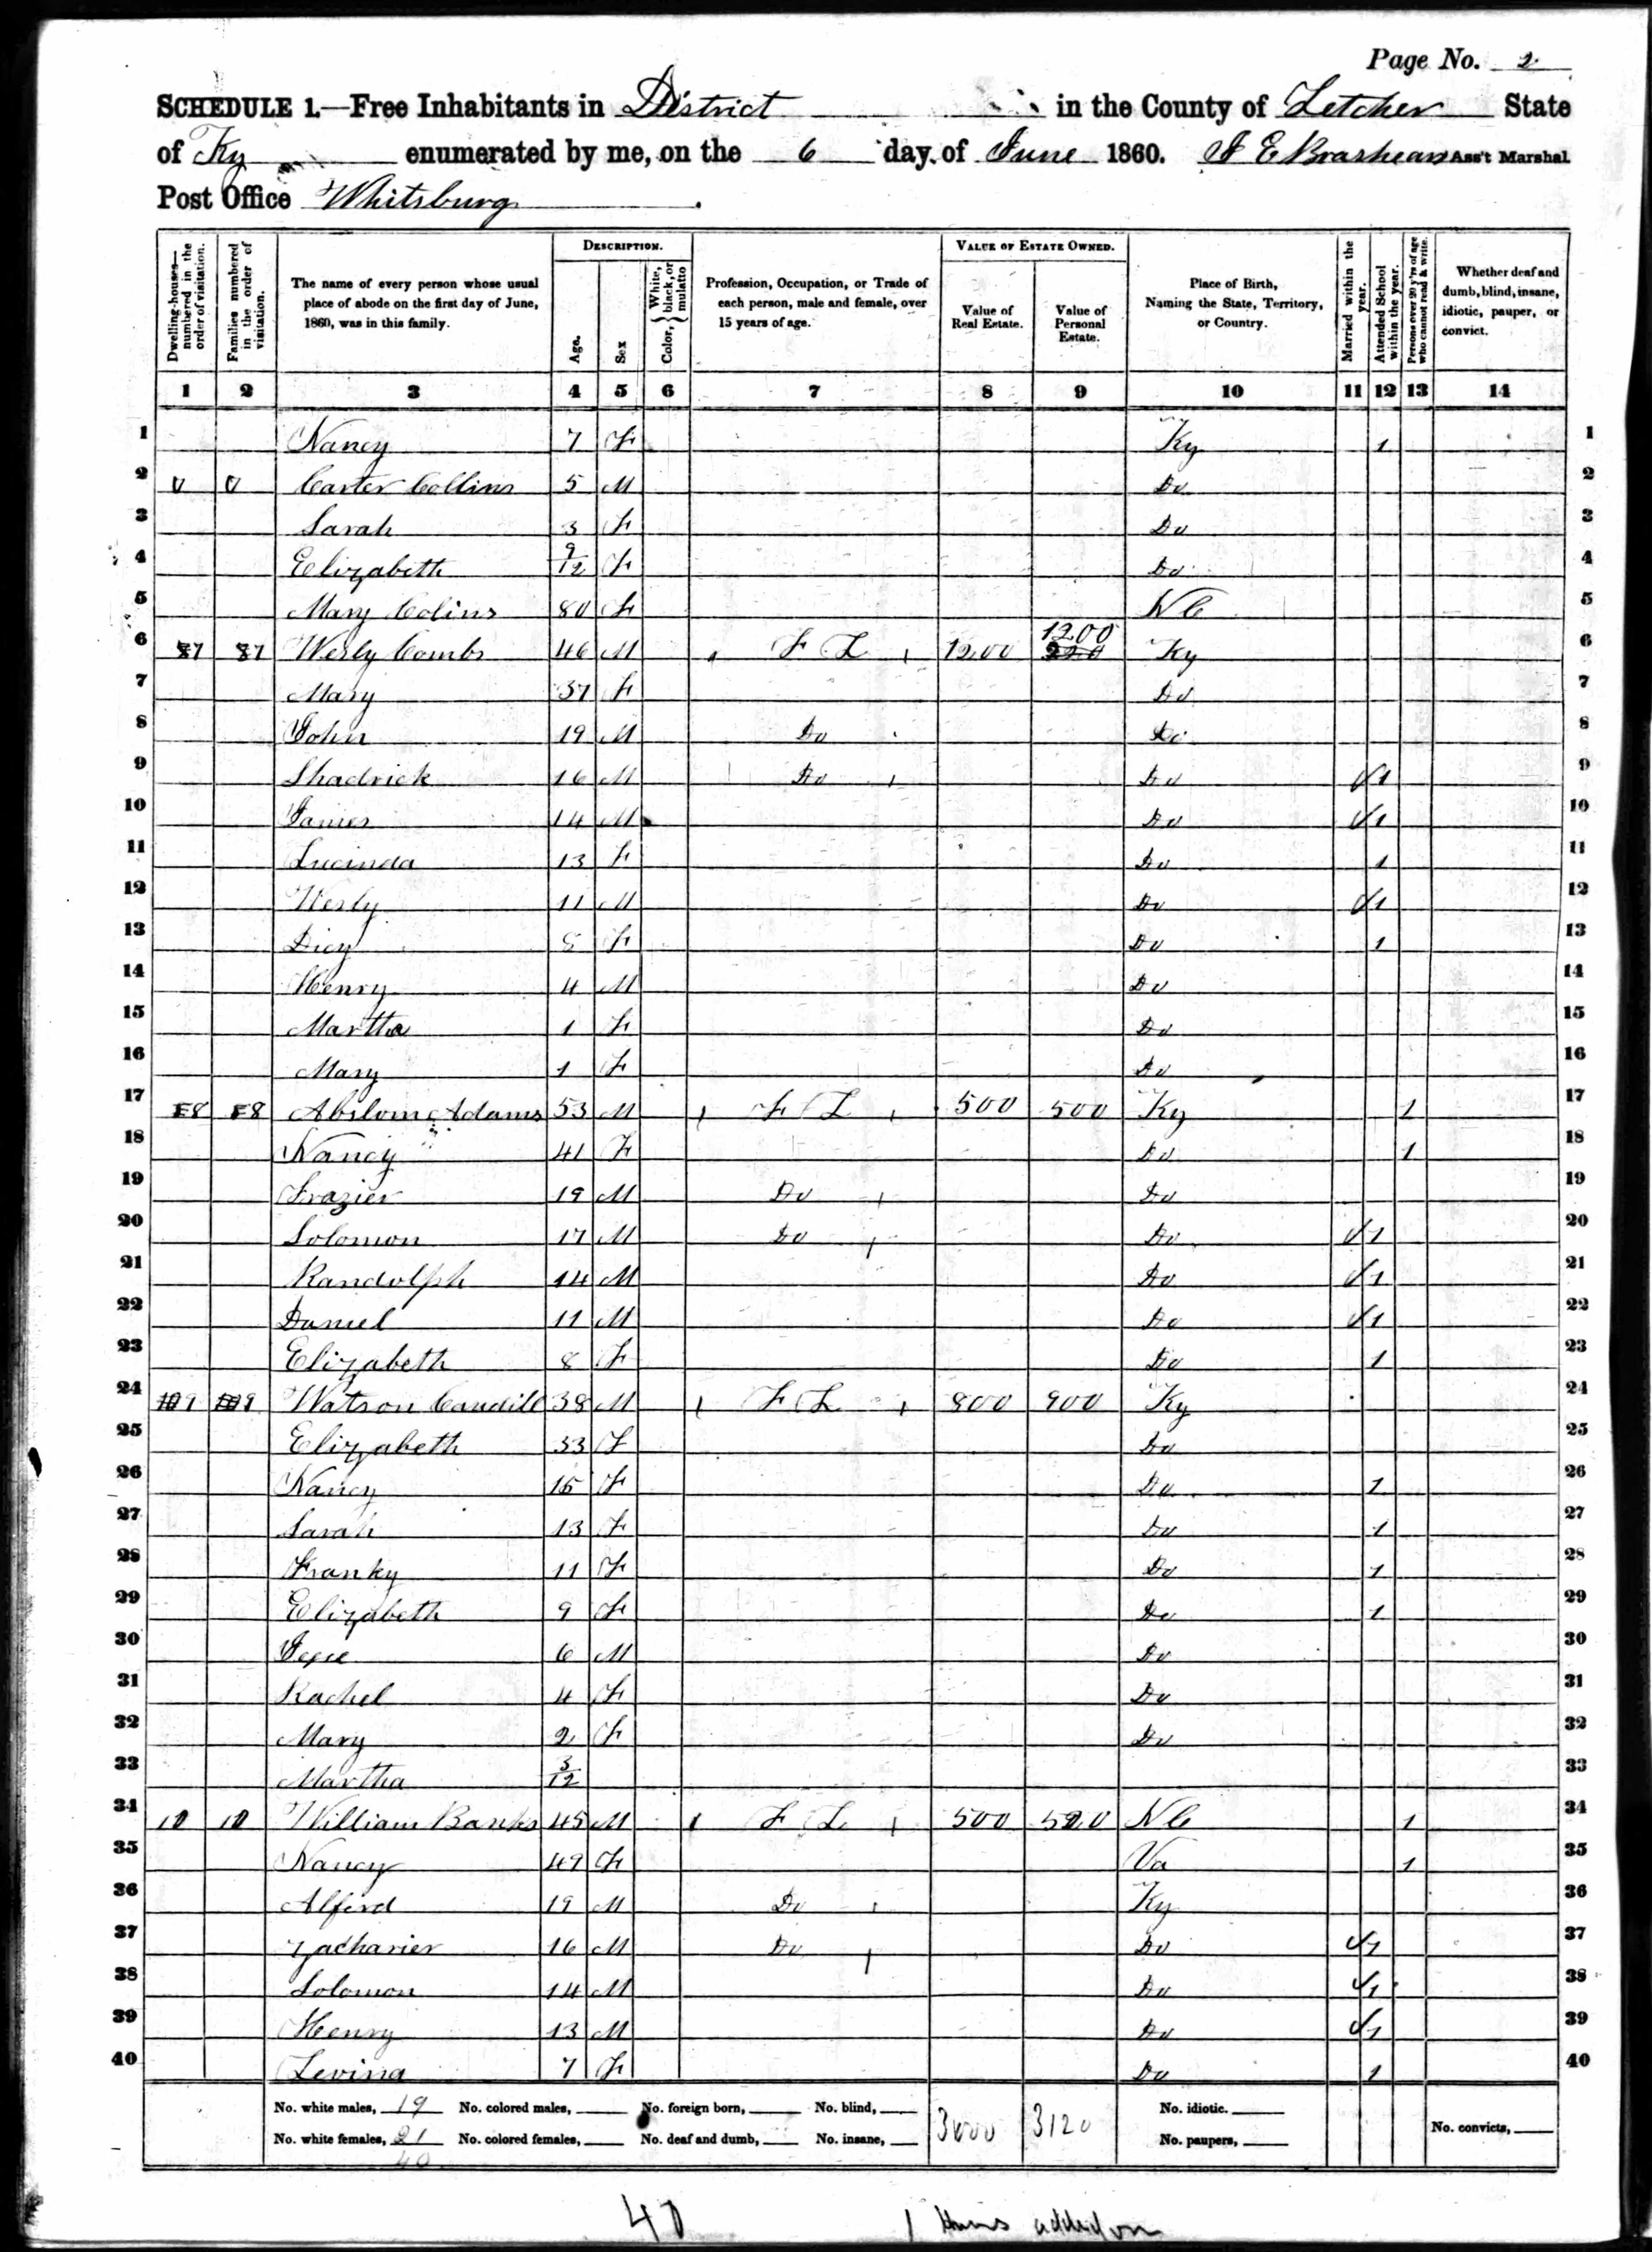 Page No. 2
SCHEDULE 1.—Free Inhabitants in District in the County of Letcher State
of Ky enumerated by me, on the 6 day of June 1860. Ass't Marshal
Post Office Whitsburg.
Dwelling-houses—numbered in the order of visitation. Families numbered in the order of visitation. The name of every person whose usual place of abode on the first day of June, 1860, was in this family. DESCRIPTION. Age. Sex Color, White, black, or mulatto Profession, Occupation, or Trade of each person, male and female, over 15 years of age. VALUE OF ESTATE OWNED. Value of Real Estate. Value of Personal Estate. Place of Birth, Naming the State, Territory, or Country. Married within the year. Attended School within the year. Persons over 20 y'rs of age who cannot read & write. Whether deaf and dumb, blind, insane, idiotic, pauper, or convict.
1 2 3 4 5 6 7 8 9 10 11 12 13 14
1 Nancy 7 F Ky 1 1
2 Carter Collins 5 M Do 2
3 Sarah 3 F Do 3
4 Elizabeth 9/12 F Do 4
5 Mary Colins 80 F N C 5
6 87 87 Wesly Combs 46 M F L 1200 1200 Ky 6
7 Mary 37 F Do 7
8 John 19 M Do Do 8
9 Shadrick 16 M Do Do 1 9
10 James 14 M Do 1 10
11 Lucinda 13 F Do 1 11
12 Wesly 11 M Do 1 12
13 Dicy 8 F Do 1 13
14 Henry 4 M Do 14
15 Martha 1 F Do 15
16 Mary 1 F Do 16
17 88 88 Abslom Adams 53 M F L 500 500 Ky 1 17
18 Nancy 41 F Do 1 18
19 Frazier 19 M Do Do 19
20 Solomon 17 M Do Do 1 20
21 Randolph 14 M Do 1 21
22 Daniel 11 M Do 1 22
23 Elizabeth 8 F Do 1 23
24 9 9 Watson Caudill 38 M F L 800 900 Ky 24
25 Elizabeth 33 F Do 25
26 Nancy 15 F Do 1 26
27 Sarah 13 F Do 1 27
28 Franky 11 F Do 1 28
29 Elizabeth 9 F Do 1 29
30 Jesse 6 M Do 30
31 Rachel 4 F Do 31
32 Mary 2 F Do 32
33 Martha 3/12 33
34 10 10 William Banks 45 M F L 500 520 N C 1 34
35 Nancy 49 F Va 1 35
36 Alferd 19 M Do Ky 36
37 Zacharier 16 M Do Do 1 37
38 Solomon 14 M Do 1 38
39 Henry 13 M Do 1 39
40 Levina 7 F Do 1 40
No. white males, 19 No. colored males, No. foreign born, No. blind, 3000 3120 No. idiotic.
No. white females, 21 No. colored females, No. deaf and dumb, No. insane, No. paupers, No. convicts,
40
40 1 added on